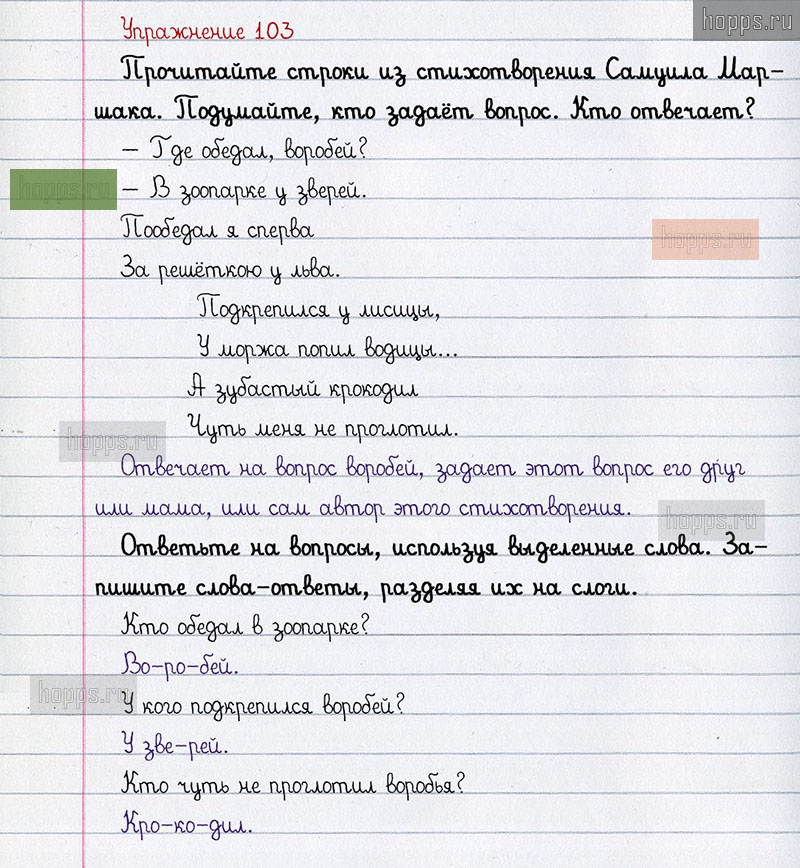 hopps.ru
Упражнение 103
Прочитайте строки из стихотворения Самуила Мар-
шака. Подумайте, кто задаёт вопрос. Кто отвечает?
– Где обедал, воробей?
hopps.ru
– В зоопарке у зверей.
Пообедал я сперва
hopps.ru
За решёткою у льва.
Подкрепился у лисицы,
У моржа попил водицы...
А зубастый крокодил
Чуть меня не проглотил.
hopps.ru
Отвечает на вопрос воробей, задает этот вопрос его друг
или мама, или сам автор этого стихотворения.
hopps.ru
Ответьте на вопросы, используя выделенные слова. За-
пишите слова-ответы, разделяя их на слоги.
Кто обедал в зоопарке?
Во-ро-бей.
hopps.ru
У кого подкрепился воробей?
У зве-рей.
Кто чуть не проглотил воробья?
Кро-ко-дил.